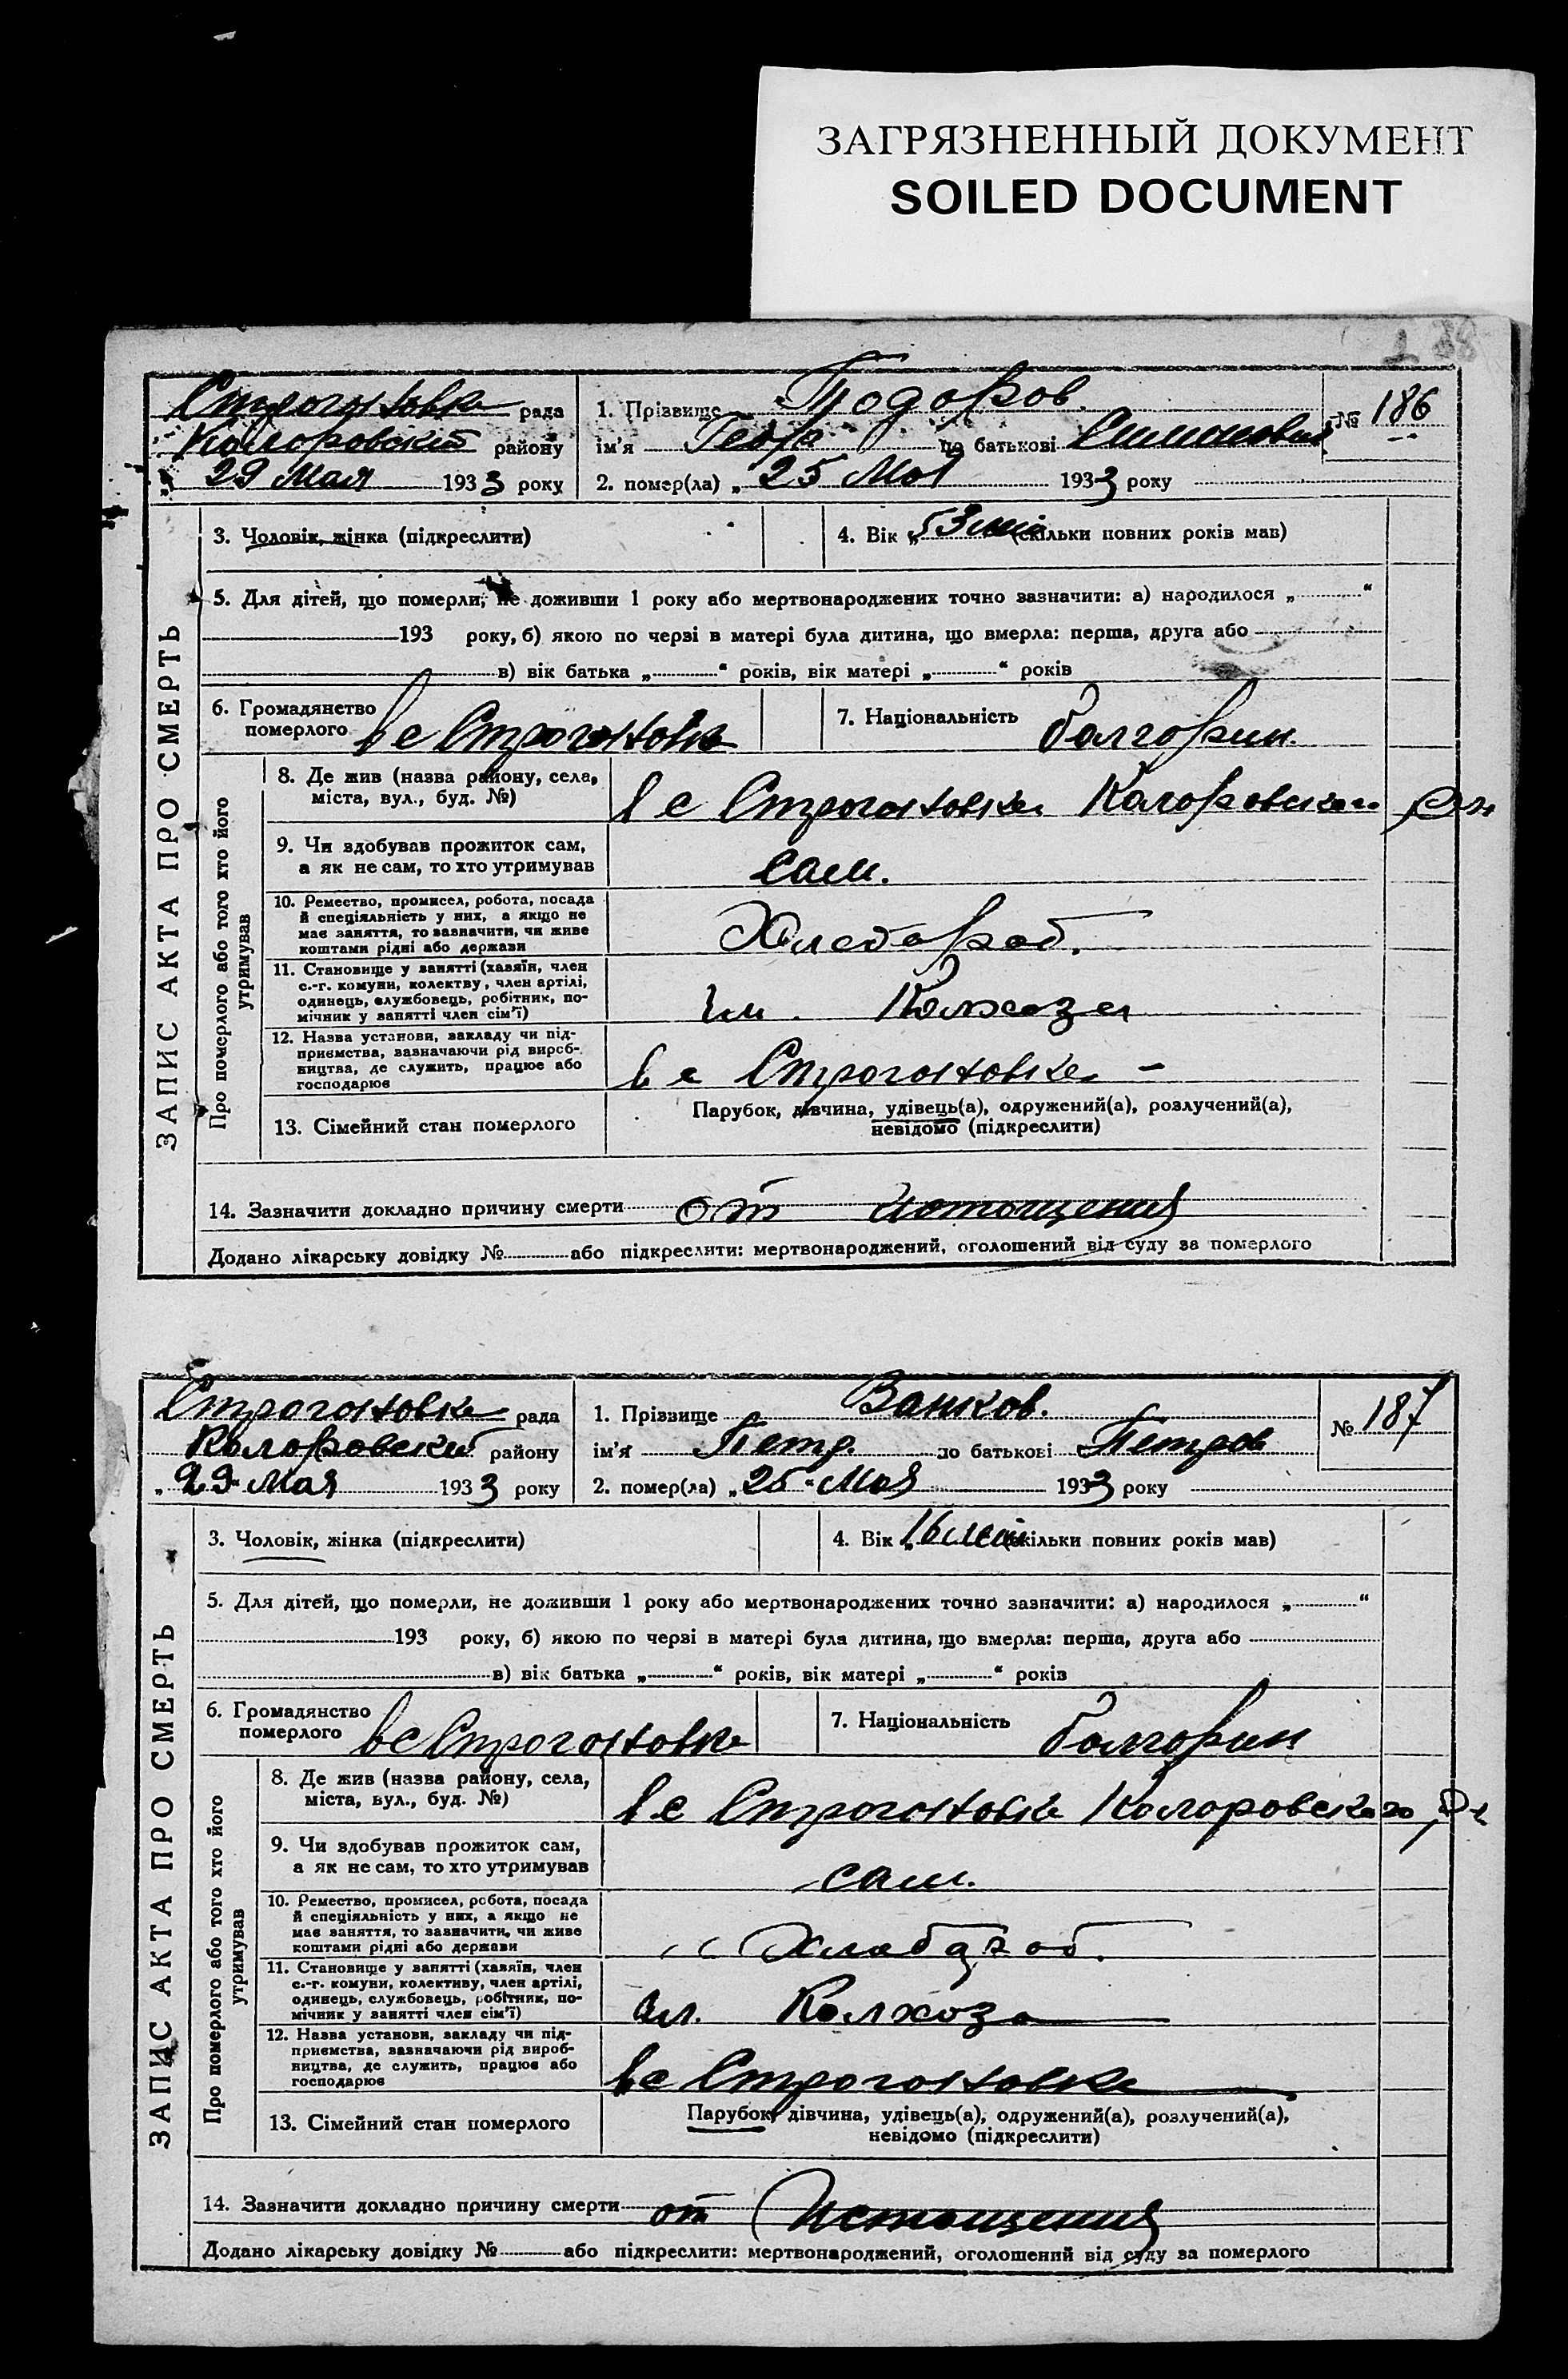 ЗАГРЯЗНЕННЫЙ ДОКУМЕНТ
SOILED DOCUMENT
ЗАПИС АКТА ПРО СМЕРТЬ
Строгоновке рада
Коларовский району
„ 29 Мая 1933 року
1. Прізвище Тодоров.
ім'я Геор по батькові Симонович
2. помер(ла) „ 25 Мая 1933 року
№ 186
3. Чоловік, жінка (підкреслити)
4. Вік „ 53 лет (скільки повних років мав)
5. Для дітей, що померли, не доживши 1 року або мертвонароджених точно зазначити: а) народилося „ “
193 року, б) якою по черзі в матері була дитина, що вмерла: перша, друга або
в) вік батька „ “ років, вік матері „ “ років
6. Громадянство
померлого в с Строгоновке
7. Національність болгорин.
Про померлого або того хто його
утримував
8. Де жив (назва району, села,
міста, вул., буд. №)
в с Строгоновке Колоровского Р-н
9. Чи здобував прожиток сам,
а як не сам, то хто утримував
сам.
10. Ремество, промисел, робота, посада
й спеціяльність у них, а якщо не
має заняття, то зазначити, чи живе
коштами рідні або держави
Хлебороб.
11. Становище у занятті (хазяїн, член
с.-г. комуни, колектву, член артілі,
одинець, службовець, робітник, по-
мічник у занятті член сім'ї)
чл. Колхоза
12. Назва установи, закладу чи під-
приємства, зазначаючи рід вироб-
ництва, де служить, працює або
господарює
в с Строгоновке –
13. Сімейний стан померлого
Парубок, дівчина, удівець(а), одружений(а), розлучений(а),
невідомо (підкреслити)
14. Зазначити докладно причину смерти от истощения
Додано лікарську довідку № або підкреслити: мертвонароджений, оголошений від суду за померлого
ЗАПИС АКТА ПРО СМЕРТЬ
Строгоновке рада
Колоровский району
„ 29 “ Мая 1933 року
1. Прізвище Ванков.
ім'я Петр. по батькові Петров
2. помер(ла) „ 25 “ Мая 1933 року
№ 187
3. Чоловік, жінка (підкреслити)
4. Вік „ 16 лет (скільки повних років мав)
5. Для дітей, що померли, не доживши 1 року або мертвонароджених точно зазначити: а) народилося „ “
193 року, б) якою по черзі в матері була дитина, що вмерла: перша, друга або
в) вік батька „ “ років, вік матері „ “ років
6. Громадянство
померлого в с Строгоновке
7. Національність болгорин
Про померлого або того хто його
утримував
8. Де жив (назва району, села,
міста, вул., буд. №)
в с Строгоновке Колоровского Р-н
9. Чи здобував прожиток сам,
а як не сам, то хто утримував
сам.
10. Ремество, промисел, робота, посада
й спеціяльність у них, а якщо не
має заняття, то зазначити, чи живе
коштами рідні або держави
11. Становище у занятті (хазяїн, член
с.-г. комуни, колективу, член артілі,
одинець, службовець, робітник, по-
мічник у занятті член сім'ї)
чл. Колхоза
12. Назва установи, закладу чи під-
приємства, зазначаючи рід вироб-
ництва, де служить, працює або
господарює
в с Строгоновке
13. Сімейний стан померлого
Парубок, дівчина, удівець(а), одружений(а), розлучений(а),
невідомо (підкреслити)
14. Зазначити докладно причину смерти от Истощения
Додано лікарську довідку № або підкреслити: мертвонароджений, оголошений від суду за померлого